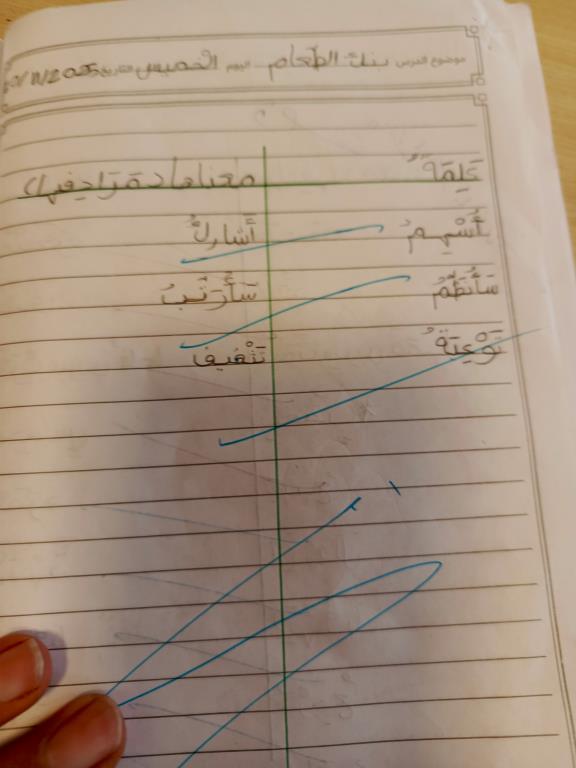 موضوع الدرس بنك الطعام اليوم الخميس التاريخ
كَلِمَةٌ معناها
أُسْهِمُ أُشَارِكُ
سَأُنَظِّمُ سَأُرَتِّبُ
تَوْعِيَةٌ تَثْقِيف